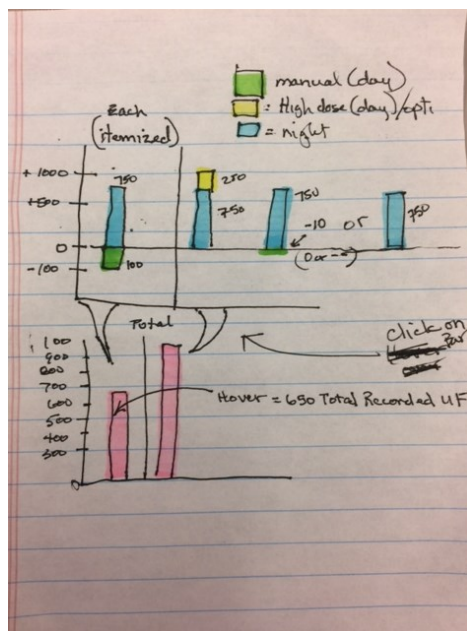 manual (day)
= High dose (day)/opti
= night
Each
(itemized)
+ 1000
+500
0
-100
750
100
250
750
750
-10 or
(0 or --)
750
Total
1100
900
800
700
600
500
400
300
0
click on
Bar
Hover = 650 Total Recorded UF